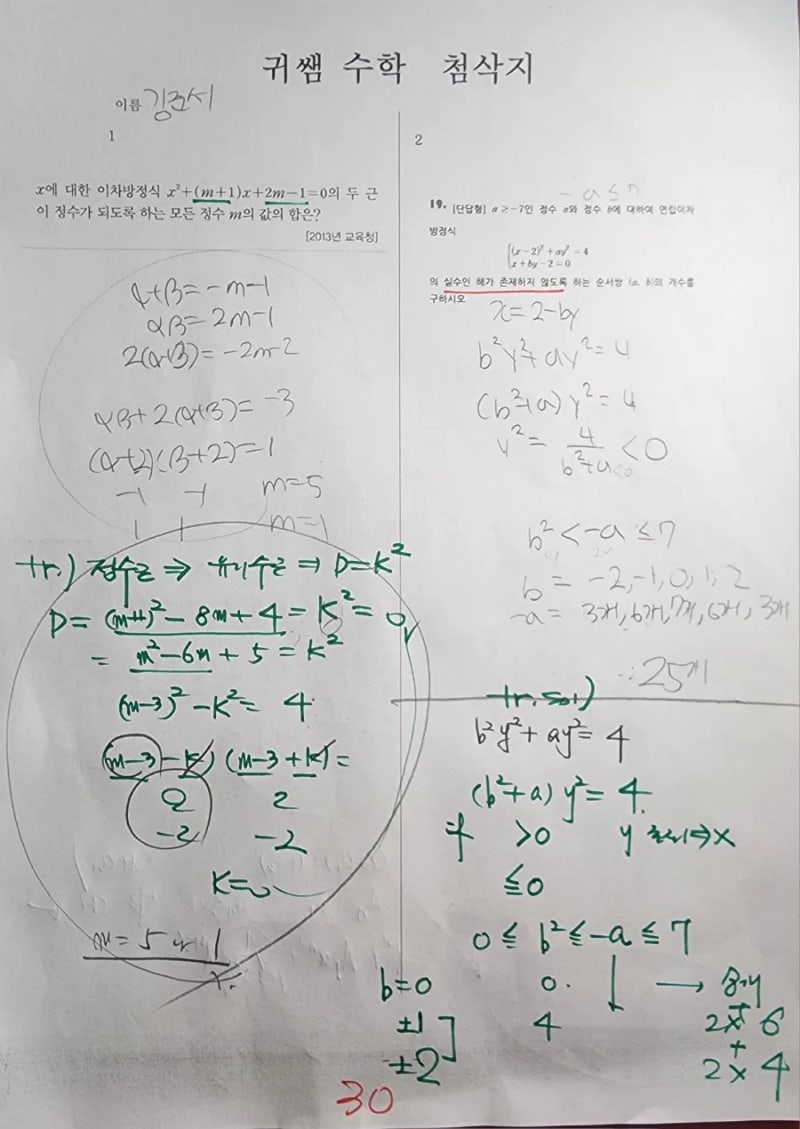 귀쌤 수학 첨삭지
이름 김조서
1
x에 대한 이차방정식 x²+(m+1)x+2m-1=0의 두 근
이 정수가 되도록 하는 모든 정수 m의 값의 합은?
[2013년 교육청]
α+β=-m-1
αβ=2m-1
2(α+β)=-2m-2
αβ+2(α+β)=-3
(α+2)(β+2)=1
-1 -1 m=5
1 1 m=1
tr.) 정수근 ⇒ 유리수근 ⇒ D=K²
D=(m+1)²-8m+4=K²=
= m²-6m+5=K²
(m-3)²-K²=4
(m-3-K)(m-3+K)=
2 2
-2 -2
K=0
m=5 or 1
2
-a≤7
19. [단답형] a≥-7인 정수 a와 정수 b에 대하여 연립이차
방정식
(x-2)²+ay²=4
x+by-2=0
의 실수인 해가 존재하지 않도록 하는 순서쌍 (a, b)의 개수를
구하시오
x=2-by
b²y²+ay²=4
(b²+a)y²=4
y²=4/(b²+a)<0
b²<-a≤7
b=-2,-1,0,1,2
-a=3개,6개,7개,6개,3개
∴25개
tr.sol)
b²y²+ay²=4
(b²+a)y²=4.
if >0 y ⇒x
≦0
0≦b²≦-a≦7
b=0 0. → 8개
±1 4 2×6
+
±2 2×4
30